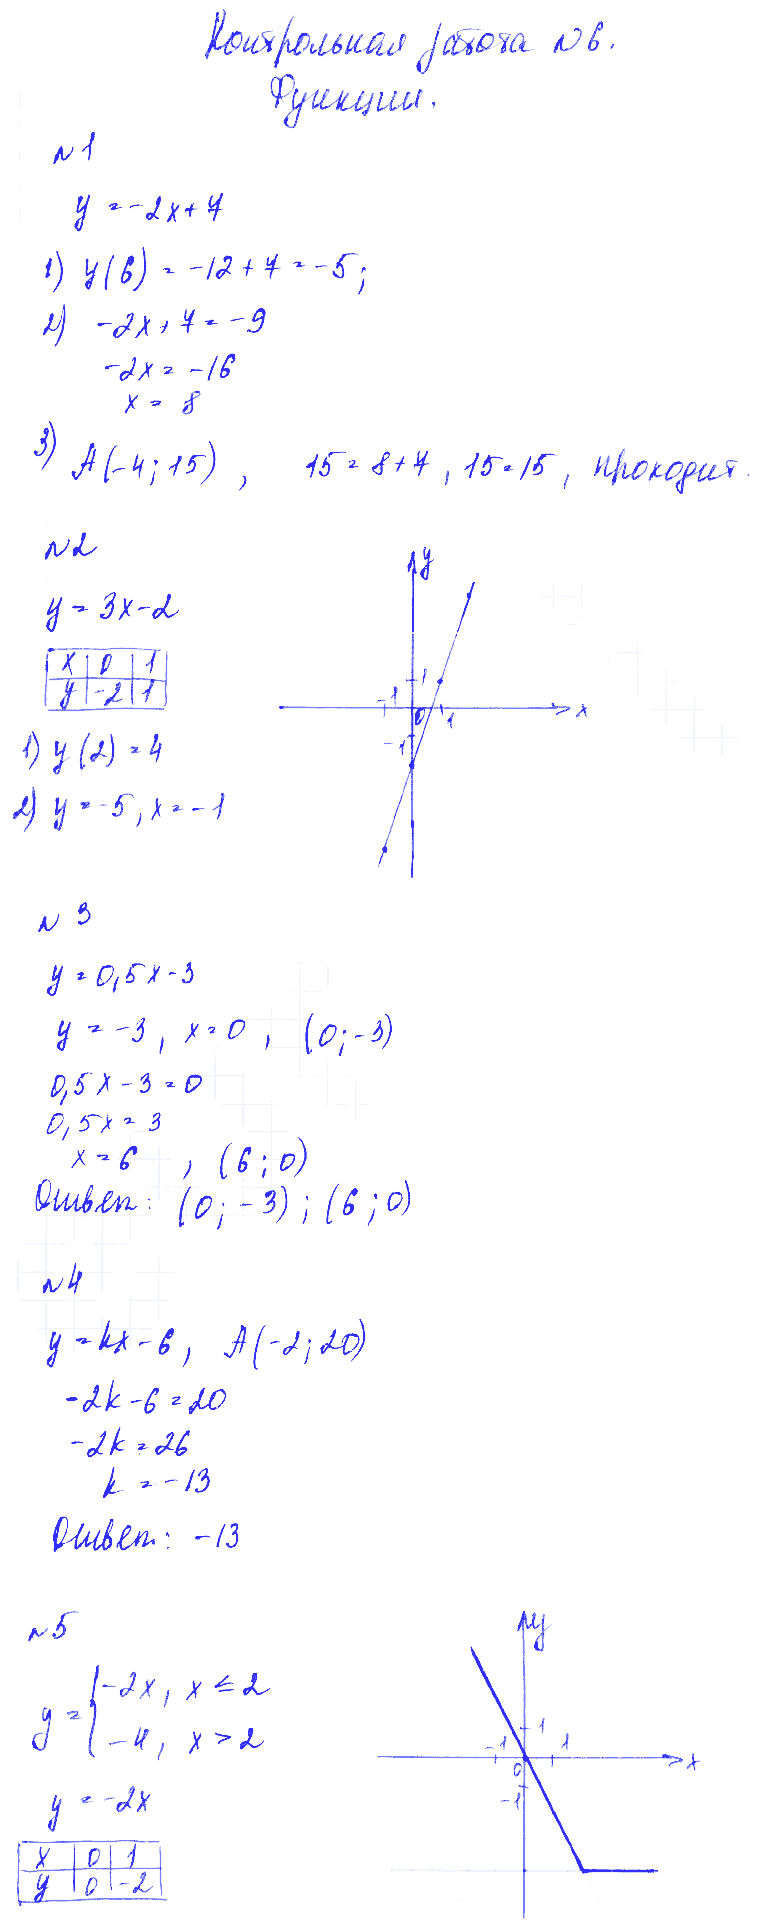 Контрольная работа №6.
Функции.
№1
y = -2x+7
1) y(6) = -12+7 = -5;
2) -2x+7 = -9
-2x = -16
x = 8
3) A(-4; 15), 15 = 8+7, 15=15, проходит.
№2
y = 3x-2
x 0 1
y -2 1
1) y(2) = 4
2) y = -5, x = -1
y
1
-1
0
1
x
-1
№3
y = 0,5x-3
y = -3, x=0, (0; -3)
0,5x-3=0
0,5x=3
x=6, (6; 0)
Ответ: (0; -3); (6; 0)
№4
y = kx-6, A(-2; 20)
-2k-6=20
-2k=26
k = -13
Ответ: -13
№5
y = { -2x, x ≤ 2
-4, x > 2
y = -2x
x 0 1
y 0 -2
y
1
-1
1
0
x
-1